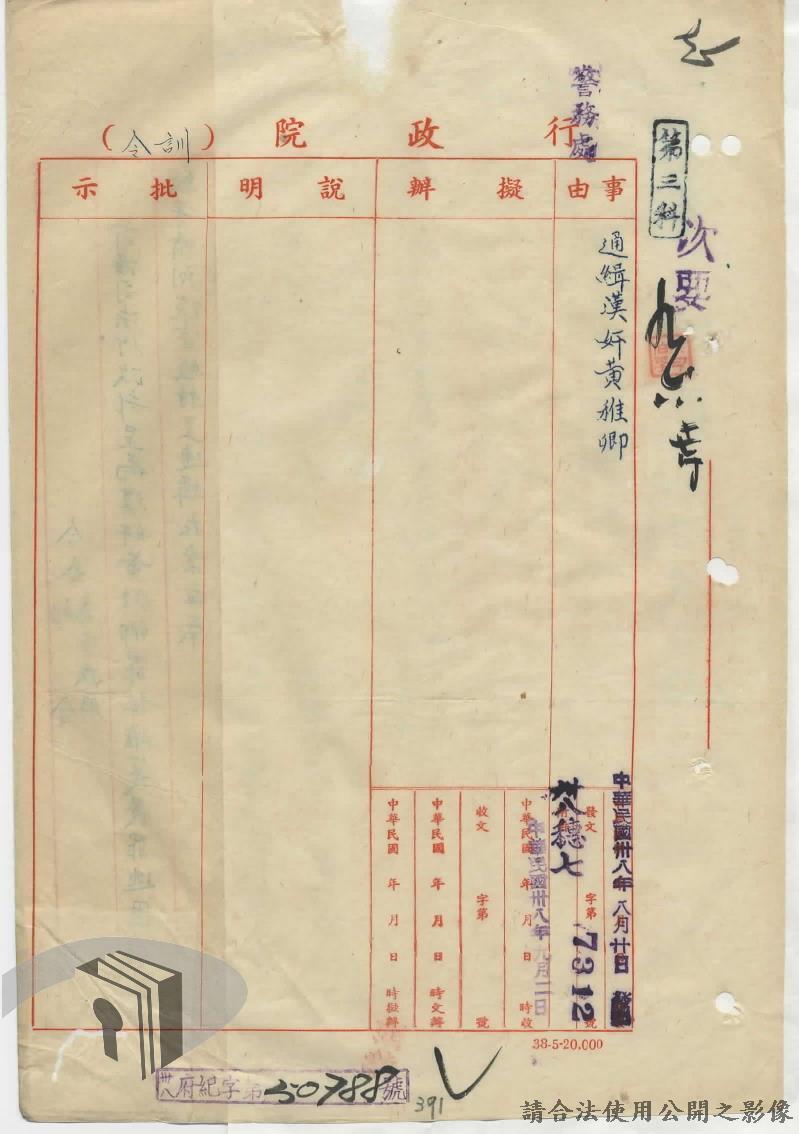 行政院（訓令）
警務處
第三科
次要
事由
擬辦
說明
批示
通緝漢奸黃稚卿
中華民國卅八年八月廿日發
發文 字第 號
卅八穗七
7312
中華民國 年 月 日 時收
中華民國卅八年九月二日
收文 字第 號
中華民國 年 月 日 時交辦
中華民國 年 月 日 時擬辦
38-5-20.000
卅八府紀字第50788號
391
請合法使用公開之影像